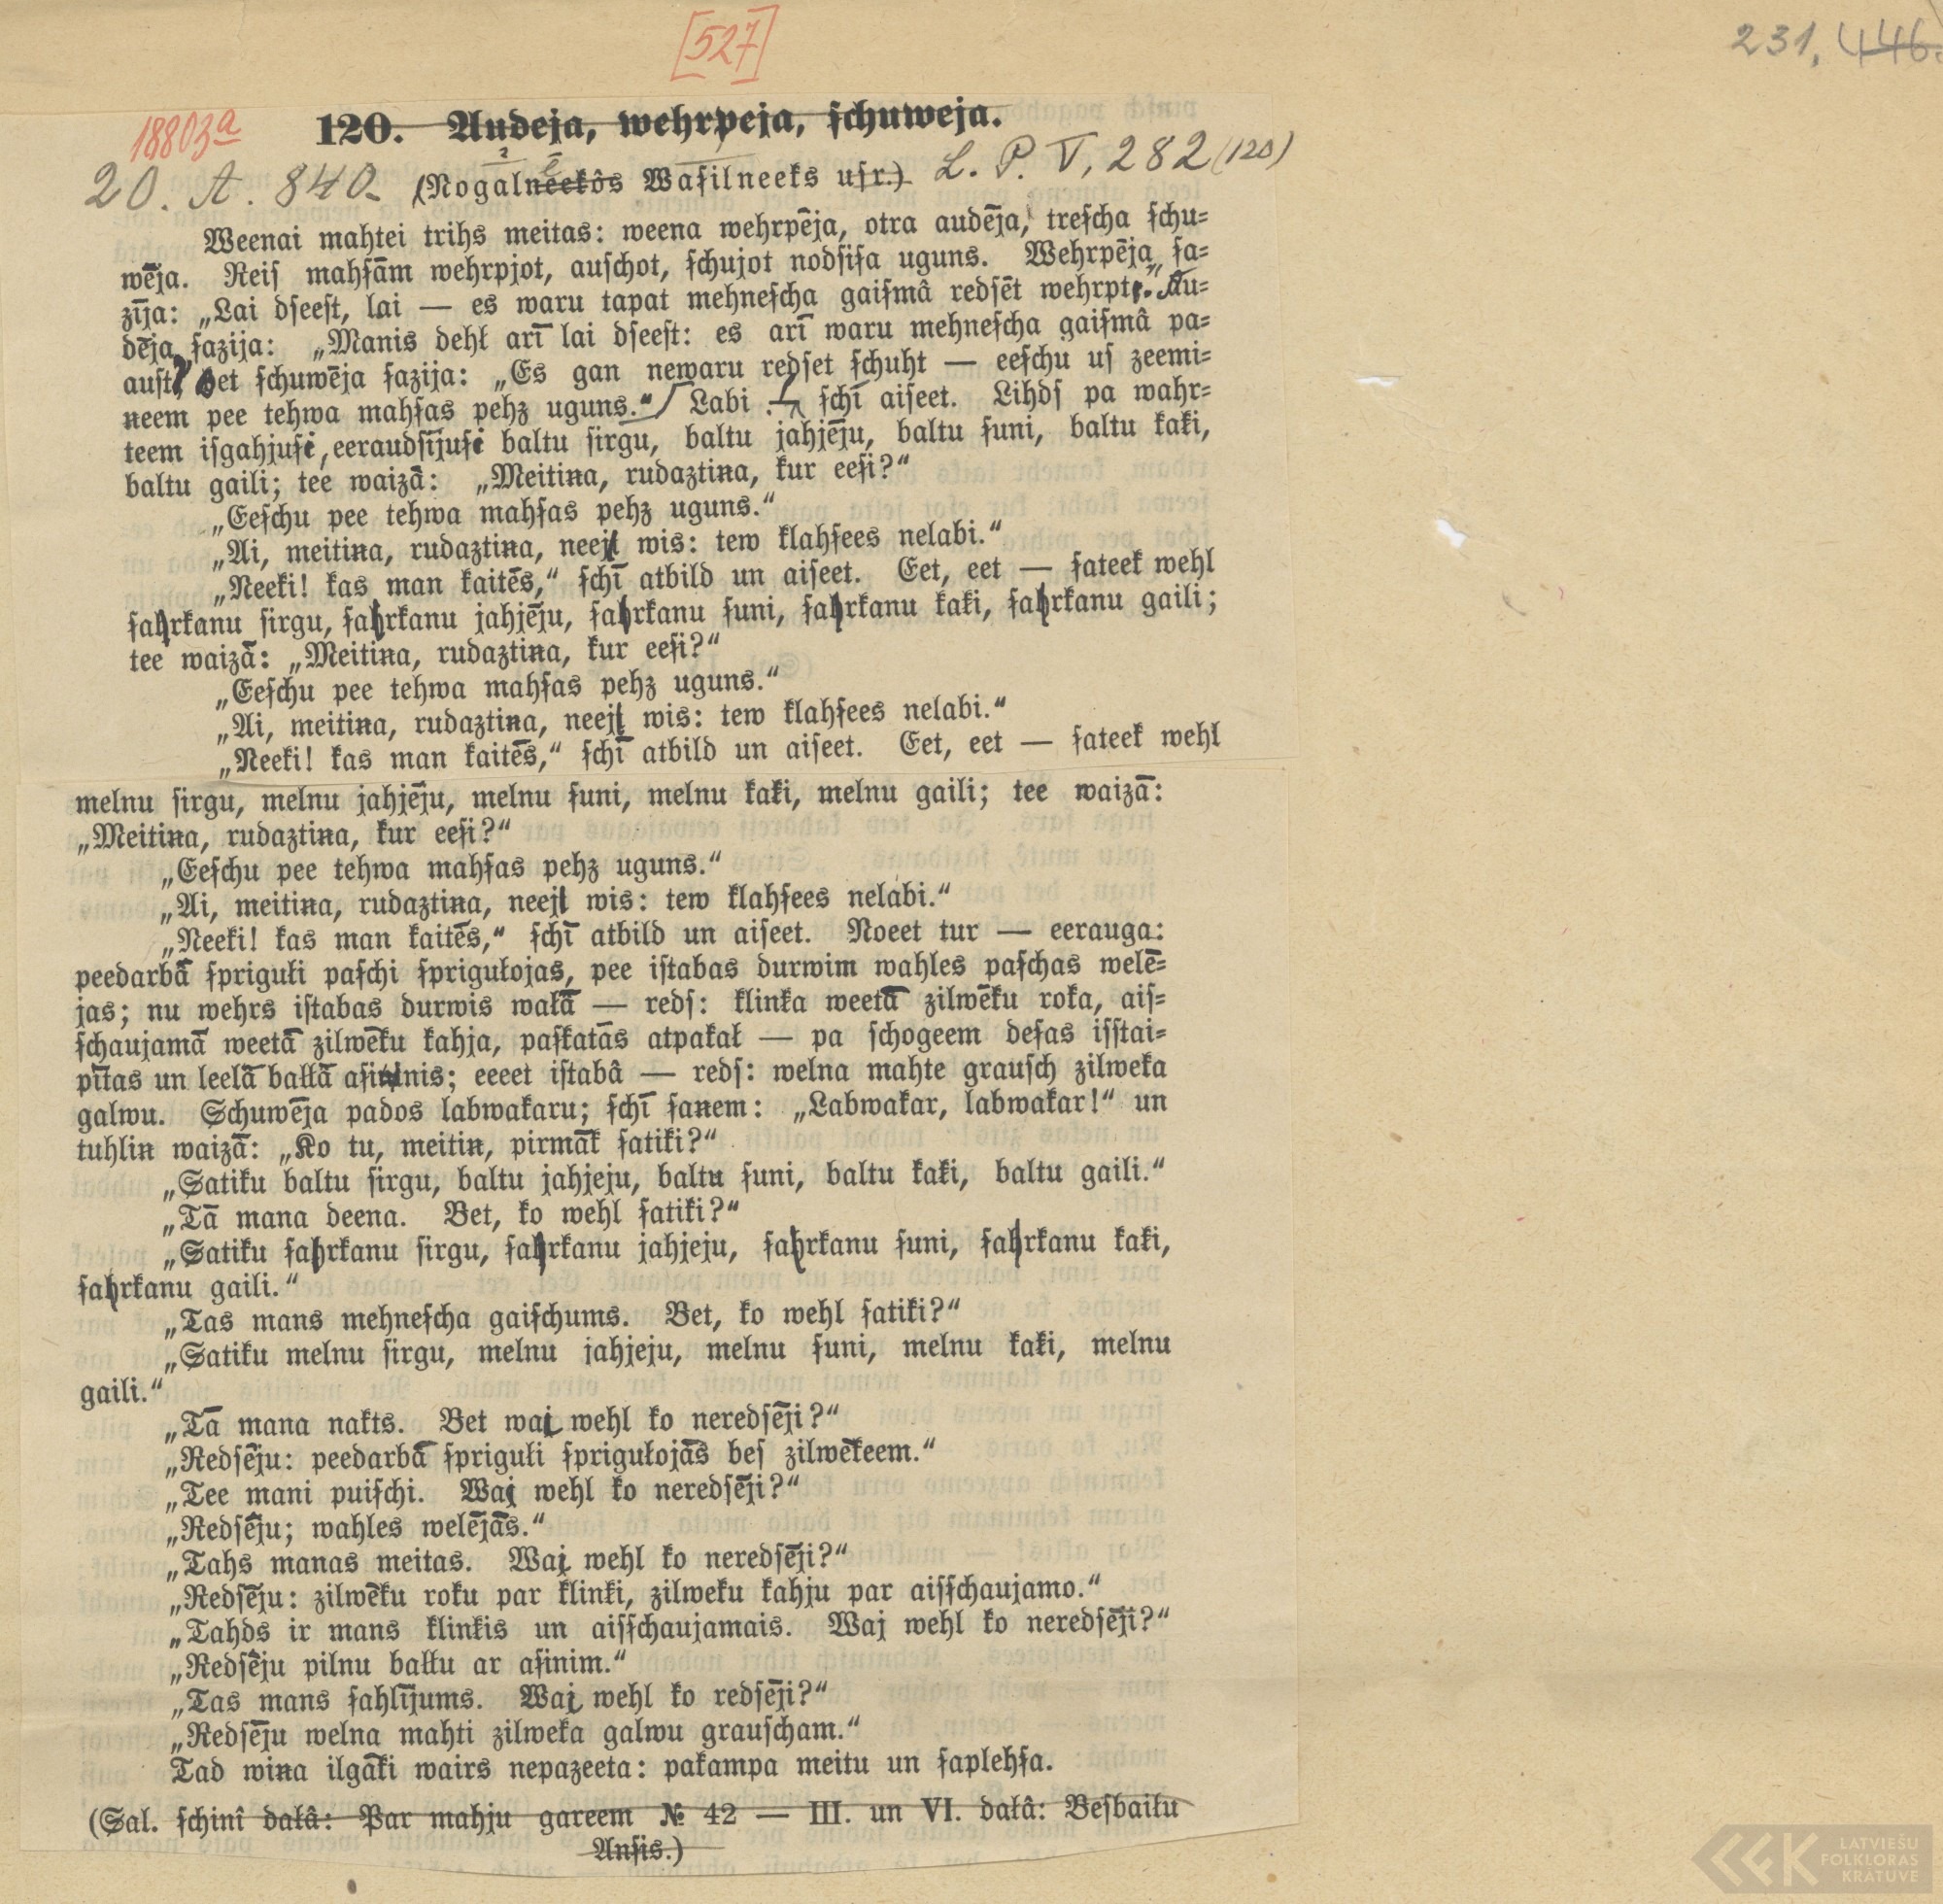 [527]
231, 446.
18803a
120. Audeja, wehrpeja, ſchuweja.
20. A. 840. (Nogalneekôs Waſilneeks uſr.) L. P. V, 282 (120)
Weenai mahtei trihs meitas: weena wehrpēja, otra audēja, treſcha ſchu=
wēja. Reiſ mahſām wehrpjot, auſchot, ſchujot nodſiſa uguns. Wehrpēja ſa=
zīja: „Lai dſeeſt, lai — es waru tapat mehneſcha gaiſmâ redſēt wehrpt. Au=
dēja ſazija: „Manis dehł arī lai dſeeſt: es arī waru mehneſcha gaiſmâ pa=
auſt, bet ſchuwēja ſazija: „Es gan newaru redſet ſchuht — eeſchu uſ zeemi=
neem pee tehwa mahſas pehz uguns.“ Labi ſchī aiſeet. Lihdſ pa wahr=
teem iſgahjuſi, eeraudſījuſi baltu ſirgu, baltu jahjēju, baltu ſuni, baltu kaķi,
baltu gaili; tee waizā: „Meitiņa, rudaztiņa, kur eeſi?“
„Eeſchu pee tehwa mahſas pehz uguns.“
„Ai, meitiņa, rudaztiņa, neej wis: tew klahſees nelabi.“
„Neeki! kas man kaitēs,“ ſchī atbild un aiſeet. Eet, eet — ſateek wehl
ſahrkanu ſirgu, ſahrkanu jahjēju, ſahrkanu ſuni, ſahrkanu kaķi, ſahrkanu gaili;
tee waizā: „Meitiņa, rudaztiņa, kur eeſi?“
„Eeſchu pee tehwa mahſas pehz uguns.“
„Ai, meitiņa, rudaztiņa, neej wis: tew klahſees nelabi.“
„Neeki! kas man kaitēs,“ ſchī atbild un aiſeet. Eet, eet — ſateek wehl
melnu ſirgu, melnu jahjēju, melnu ſuni, melnu kaķi, melnu gaili; tee waizā:
„Meitiņa, rudaztiņa, kur eeſi?“
„Eeſchu pee tehwa mahſas pehz uguns.“
„Ai, meitiņa, rudaztiņa, neej wis: tew klahſees nelabi.“
„Neeki! kas man kaitēs,“ ſchī atbild un aiſeet. Noeet tur — eerauga:
peedarbā ſprigułi paſchi ſprigułojas, pee iſtabas durwim wahles paſchas welē=
jas; nu wehrs iſtabas durwis wałā — redſ: klinķa weetā zilwēku roka, aiſ=
ſchaujamā weetā zilwēku kahja, paſkatās atpakał — pa ſchogeem deſas iſſtai=
pītas un leelā bałłā aſininis; eeeet iſtabâ — redſ: welna mahte grauſch zilweka
galwu. Schuwēja pados labwakaru; ſchī ſaņem: „Labwakar, labwakar!“ un
tuhliņ waizā: „Ko tu, meitiņ, pirmāk ſatiki?“
„Satiku baltu ſirgu, baltu jahjeju, baltu ſuni, baltu kaķi, baltu gaili.“
„Tā mana deena. Bet, ko wehl ſatiki?“
„Satiku ſahrkanu ſirgu, ſahrkanu jahjeju, ſahrkanu ſuni, ſahrkanu kaķi,
ſahrkanu gaili.“
„Tas mans mehneſcha gaiſchums. Bet, ko wehl ſatiki?“
„Satiku melnu ſirgu, melnu jahjeju, melnu ſuni, melnu kaķi, melnu
gaili.“
„Tā mana nakts. Bet wai wehl ko neredſēji?“
„Redſēju: peedarbā ſprigułi ſprigułojās beſ zilwēkeem.“
„Tee mani puiſchi. Wai wehl ko neredſēji?“
„Redſēju; wahles welējās.“
„Tahs manas meitas. Wai wehl ko neredſēji?“
„Redſēju: zilwēku roku par klinķi, zilweku kahju par aiſſchaujamo.“
„Tahds ir mans klinķis un aiſſchaujamais. Waj wehl ko neredſēji?“
„Redſēju pilnu bałłu ar aſinim.“
„Tas mans ſahlījums. Wai wehl ko redſēji?“
„Redſēju welna mahti zilweka galwu grauſcham.“
Tad wiņa ilgāki wairs nepazeeta: pakampa meitu un ſaplehſa.
(Sal. ſchinî dałâ: Par mahju gareem № 42 — III. un VI. dałâ: Beſbaiłu
Anſis.)
LATVIEŠU
FOLKLORAS
KRATUVE